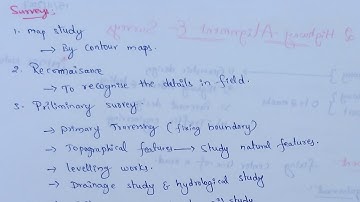 Survey:
1. map study
→ By contour maps.
2. Reconnaisance
→ To recognise the details in field.
3. Priliminary survey.
→ primary Traversing (fixing boundary)
→ Topographical features → Study natural features.
→ levelling works.
→ Drainage study & hydrological study